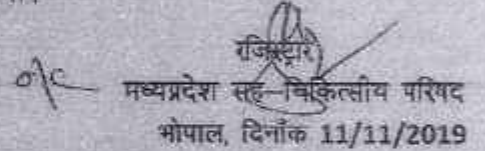 रजिस्ट्रार
o/c मध्यप्रदेश सह-चिकित्सीय परिषद
भोपाल, दिनॉक 11/11/2019